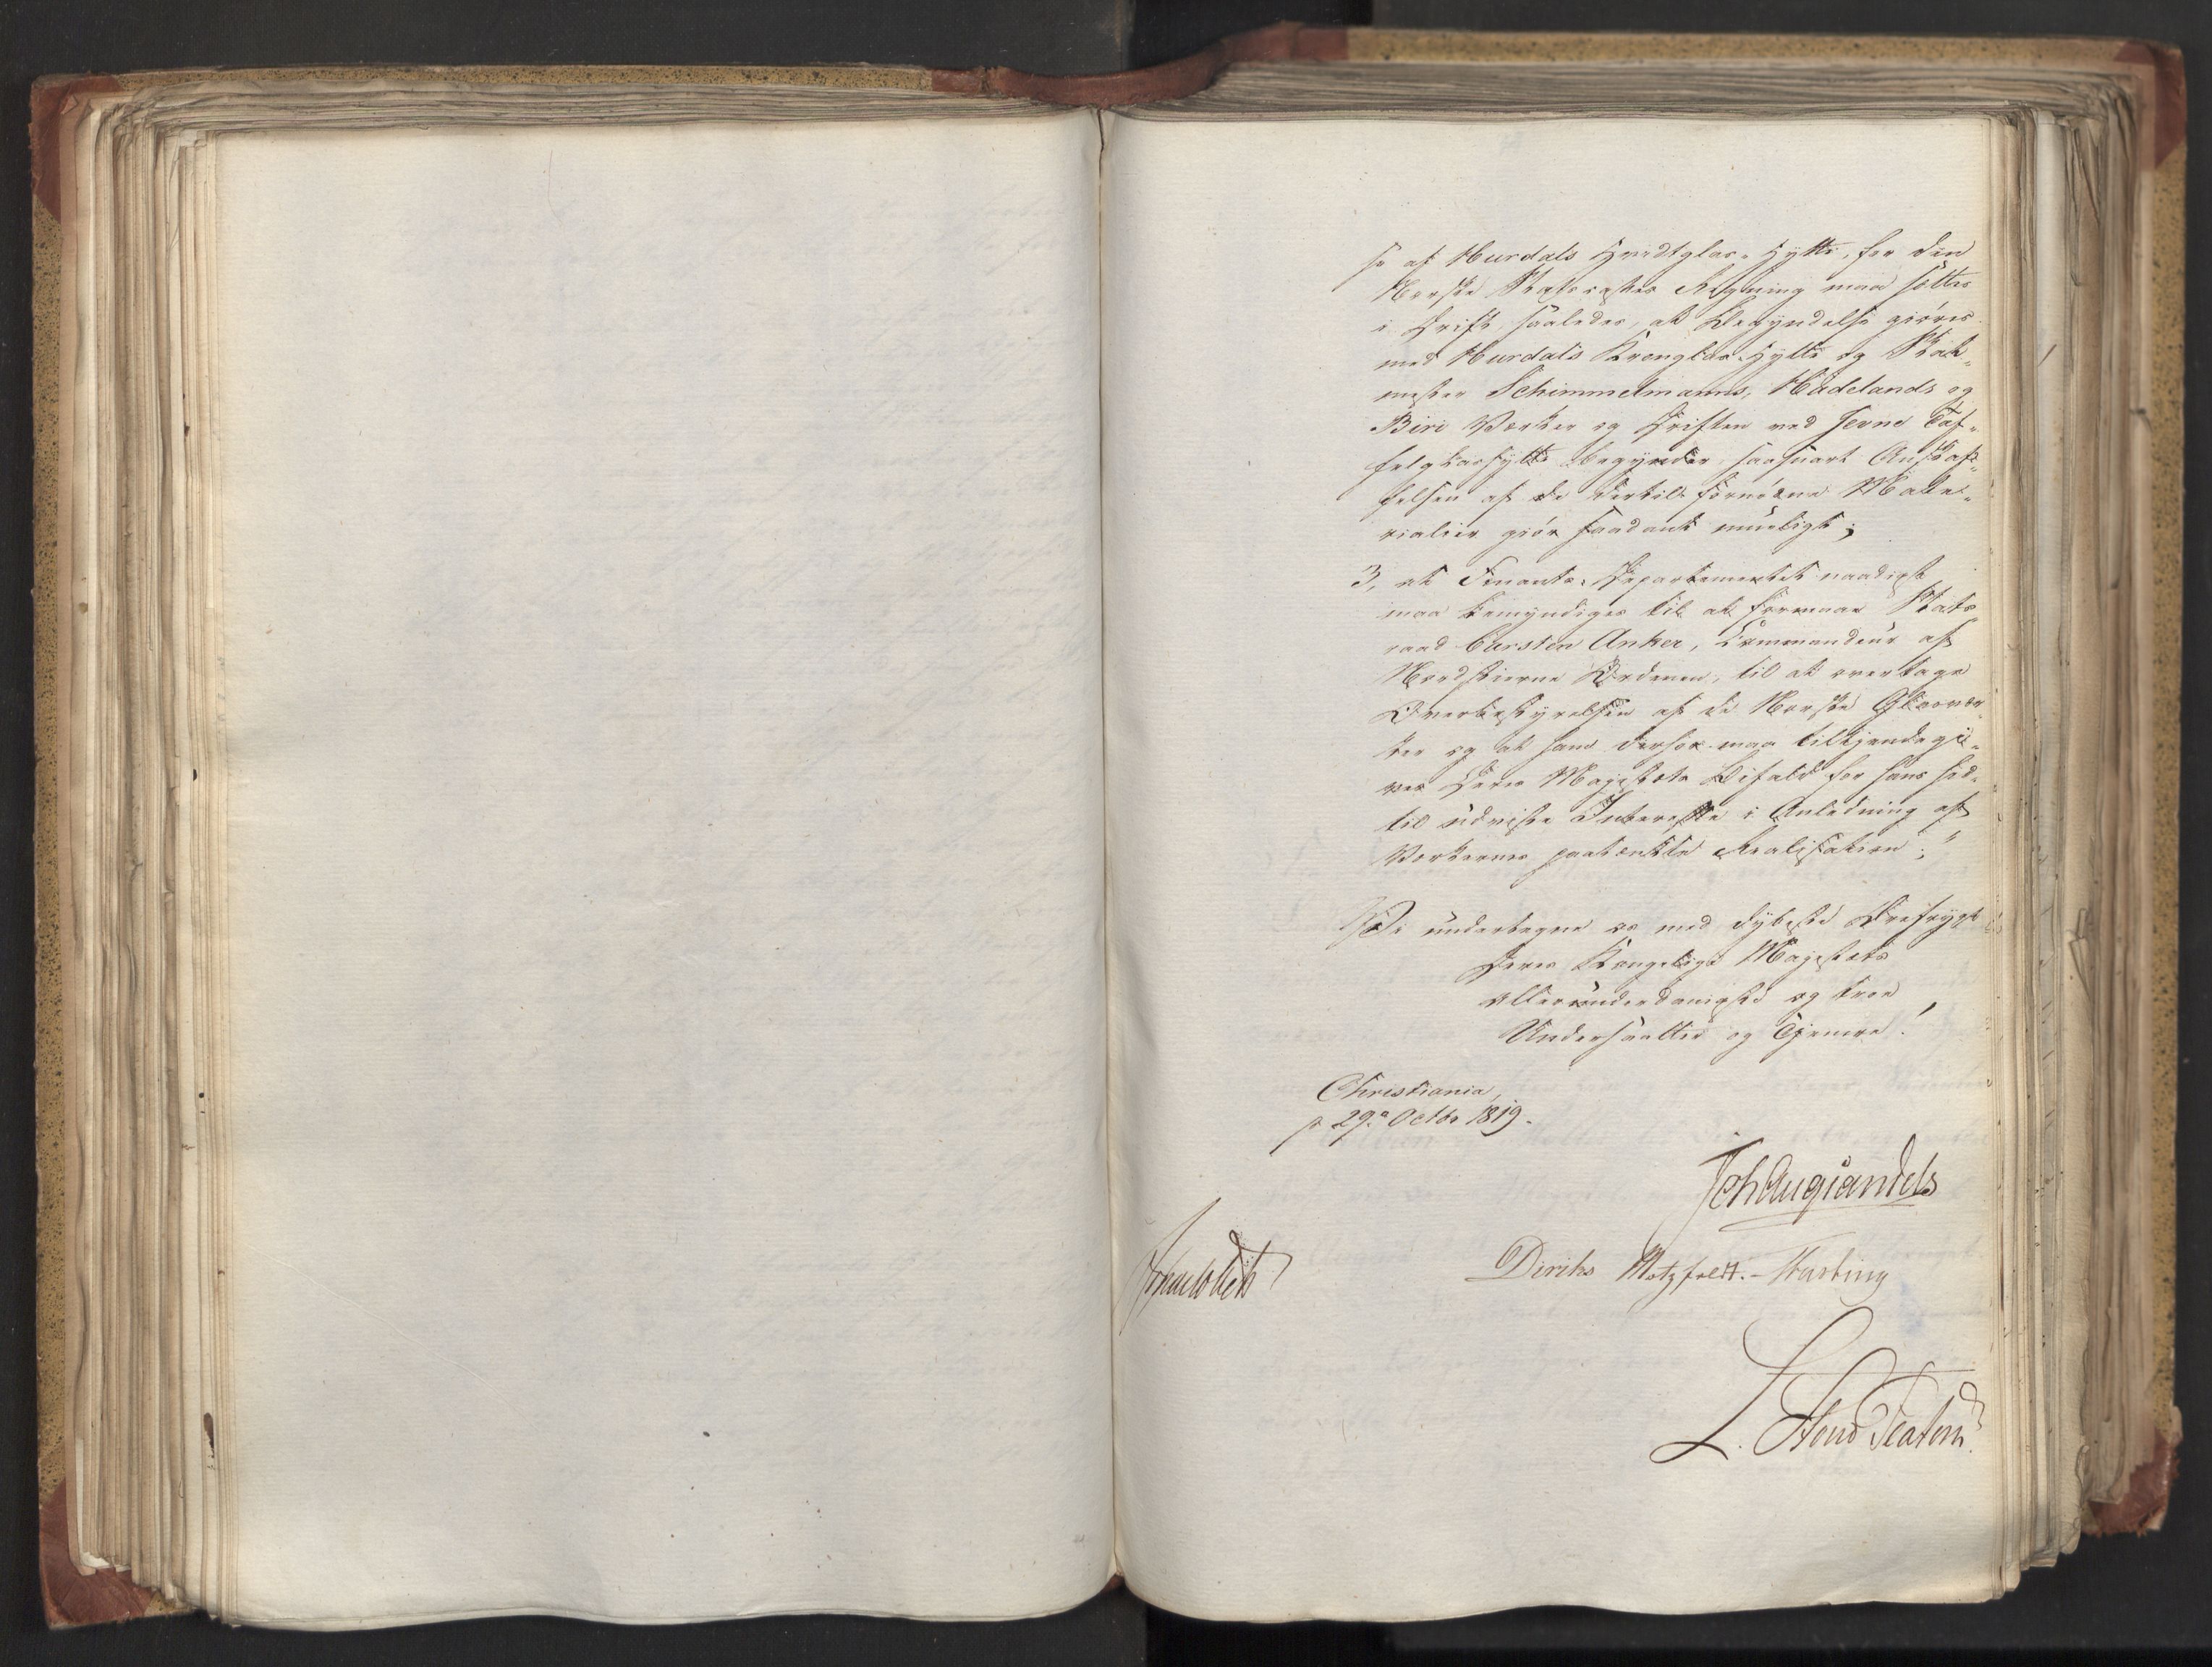 se af Hurdals Hvidtglas-Hytte, for den
Norske Statscasses Regning maa sættes
i Drift saaledes, at Begyndelse giøres
med Hurdals Kronglas-Hytte og Skat-
mester Schimmelmanns, Hadelands og
Biri Værker og Driften ved Jevne Taf-
felglashytte begynder saasnart Anskaf-
felsen af de dertil fornødne Mate-
rialier giør saadant mueligt;
3, at Finants-Departementet naadigst
maa bemyndiges til at formaae Stats
raad Carsten Anker, Commandeur af
Nordstierne Ordenen, til at overtage
Overbestyrelsen af de Norske Glasvær-
ker og at ham derfor maa tilkjendegi-
ves Deres Majestæts Bifald for hans hid-
til udviste Interesse i Anledning af
Værkernes paatænkte Realisation;"
Vi undertegne os med dybeste Ærefrygt
Deres Kongelige Majestæts
allerunderdanigste og troe
Undersaatter og Tjenere!
Christiania,
29. Octbr 1819.
Joh Aug Sandels
Diriks Motzfeldt. Fasting
L. Stoud Platou